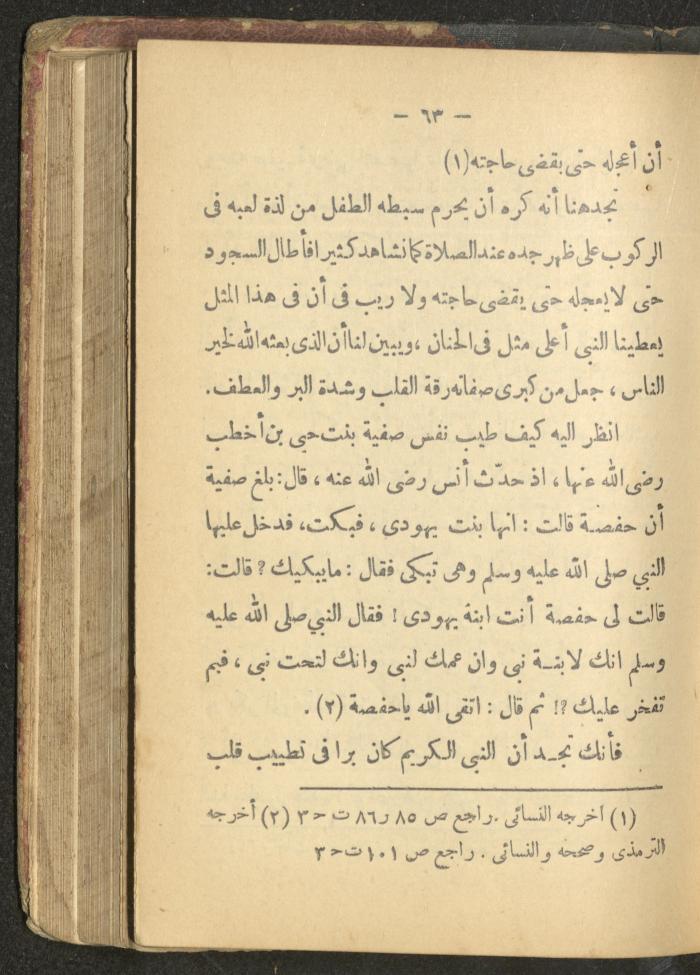 — ٦٣ —
أن أعجله حتى يقضى حاجته (١)
تجدهنا أنه كره أن يحرم سبطه الطفل من لذة لعبه فى
الركوب على ظهر جده عند الصلاة كما نشاهد كثيرا فأطال السجود
حتى لا يعجله حتى يقضى حاجته ولا ريب فى أن فى هذا المثل
يعطينا النبي أعلى مثل فى الحنان ، ويبين لنا أن الذى بعثه الله لخير
الناس ، جعل من كبرى صفاته رقة القلب وشدة البر والعطف .
انظر اليه كيف طيب نفس صفية بنت حيى بن أخطب
رضى الله عنها ، اذ حدّث أنس رضى الله عنه ، قال : بلغ صفية
أن حفصة قالت : انها بنت يهودى ، فبكت ، فدخل عليها
النبي صلى الله عليه وسلم وهى تبكى فقال : ما يبكيك ؟ قالت :
قالت لى حفصة أنت ابنة يهودى ! فقال النبي صلى الله عليه
وسلم انك لابنـة نبى وان عمك لنبى وانك لتحت نبى ، فبم
تفخر عليك ؟! ثم قال : اتقى الله ياحفصة (٢) .
فأنك تجـد أن النبى الكريم كان برا فى تطييب قلب
(١) أخرجه النسائى . راجع ص ٨٥ و ٨٦ ت ح ٣ (٢) أخرجه
الترمذى وصححه والنسائى . راجع ص ١٠١ ت ح ٣